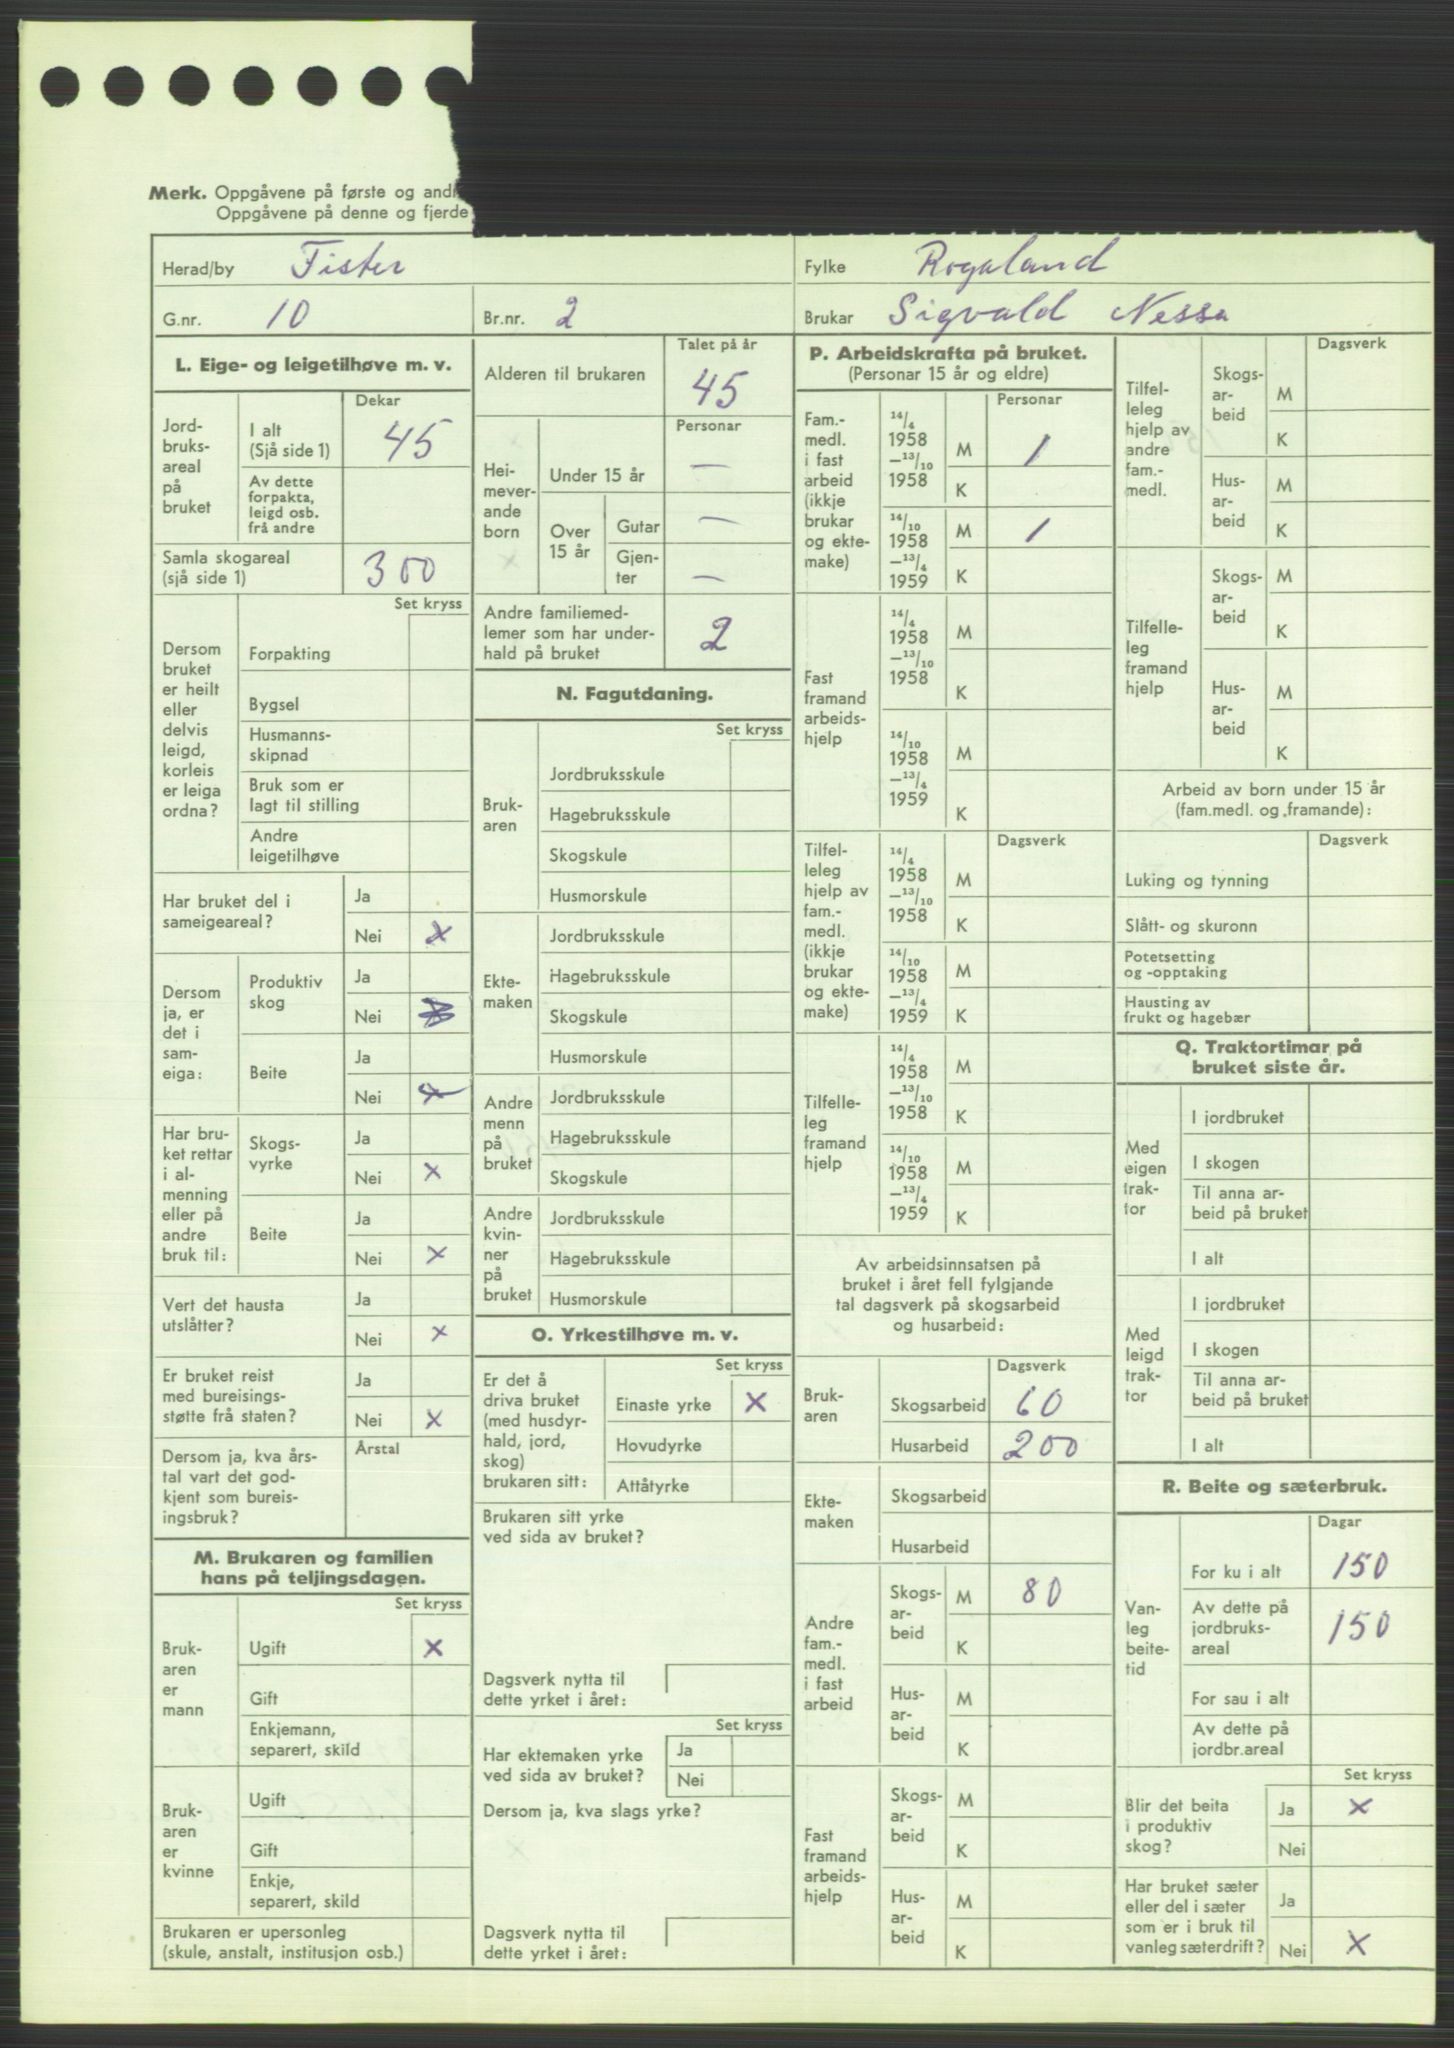 Merk. Oppgåvene på første og
Oppgåvene på denne og fjerde
Herad/by Fister
Fylke Rogaland
G.nr. 10
Br.nr. 2
Brukar Sigvald Nessa
L. Eige- og leigetilhøve m. v.
Dekar
Jord-
bruks-
areal
på
bruket
I alt
(Sjå side 1) 45
Av dette
forpakta,
leigd osb.
frå andre
Samla skogareal
(sjå side 1) 300
Set kryss
Dersom
bruket
er heilt
eller
delvis
leigd,
korleis
er leiga
ordna?
Forpakting
Bygsel
Husmanns-
skipnad
Bruk som er
lagt til stilling
Andre
leigetilhøve
Har bruket del i
sameigeareal?
Ja
Nei x
Dersom
ja, er
det i
sam-
eiga:
Produktiv
skog
Ja
Nei x
Beite
Ja
Nei x
Har bru-
ket rettar
i al-
menning
eller på
andre
bruk til:
Skogs-
vyrke
Ja
Nei x
Beite
Ja
Nei x
Vert det hausta
utslåtter?
Ja
Nei x
Er bruket reist
med bureisings-
støtte frå staten?
Ja
Nei x
Dersom ja, kva års-
tal vart det god-
kjent som bureis-
ingsbruk?
Årstal
M. Brukaren og familien
hans på teljingsdagen.
Set kryss
Bruk-
aren
er
mann
Ugift x
Gift
Enkjemann,
separert, skild
Bruk-
aren
er
kvinne
Ugift
Gift
Enkje,
separert, skild
Brukaren er upersonleg
(skule, anstalt, institusjon osb.)
Talet på år
Alderen til brukaren 45
Personar
Hei-
mever-
ande
born
Under 15 år —
Over
15 år
Gutar —
Gjen-
ter —
Andre familiemed-
lemer som har under-
hald på bruket 2
N. Fagutdaning.
Set kryss
Bruk-
aren
Jordbruksskule
Hagebruksskule
Skogskule
Husmorskule
Ekte-
maken
Jordbruksskule
Hagebruksskule
Skogskule
Husmorskule
Andre
menn
på
bruket
Jordbruksskule
Hagebruksskule
Skogskule
Andre
kvin-
ner
på
bruket
Jordbruksskule
Hagebruksskule
Husmorskule
O. Yrkestilhøve m. v.
Set kryss
Er det å
driva bruket
(med husdyr-
hald, jord,
skog)
brukaren sitt:
Einaste yrke x
Hovudyrke
Attåtyrke
Brukaren sitt yrke
ved sida av bruket?
Dagsverk nytta til
dette yrket i året:
Set kryss
Har ektemaken yrke
ved sida av bruket?
Ja
Nei
Dersom ja, kva slags yrke?
Dagsverk nytta til
dette yrket i året:
P. Arbeidskrafta på bruket.
(Personar 15 år og eldre)
Personar
Fam.-
medl.
i fast
arbeid
(ikkje
brukar
og ekte-
make)
14/4
1958
—13/10
1958
M 1
K
14/10
1958
—13/4
1959
M 1
K
Fast
framand
arbeids-
hjelp
14/4
1958
—13/10
1958
M
K
14/10
1958
—13/4
1959
M
K
Dagsverk
Tilfel-
leleg
hjelp av
fam.-
medl.
(ikkje
brukar
og ekte-
make)
14/4
1958
—13/10
1958
M
K
14/10
1958
—13/4
1959
M
K
Tilfelle-
leg
framand
hjelp
14/4
1958
—13/10
1958
M
K
14/10
1958
—13/4
1959
M
K
Av arbeidsinnsatsen på
bruket i året fell fylgjande
tal dagsverk på skogsarbeid
og husarbeid:
Dagsverk
Bruk-
aren
Skogsarbeid 60
Husarbeid 200
Ekte-
maken
Skogsarbeid
Husarbeid
Andre
fam.-
medl.
i fast
arbeid
Skogs-
ar-
beid
M 80
K
Hus-
ar-
beid
M
K
Fast
framand
arbeids-
hjelp
Skogs-
ar-
beid
M
K
Hus-
ar-
beid
M
K
Dagsverk
Tilfel-
leleg
hjelp av
andre
fam.-
medl.
Skogs-
ar-
beid
M
K
Hus-
ar-
beid
M
K
Tilfelle-
leg
framand
hjelp
Skogs-
ar-
beid
M
K
Hus-
ar-
beid
M
K
Arbeid av born under 15 år
(fam.medl. og framande):
Dagsverk
Luking og tynning
Slått- og skuronn
Potetsetting
og -opptaking
Hausting av
frukt og hagebær
Q. Traktortimar på
bruket siste år.
Med
eigen
trak-
tor
I jordbruket
I skogen
Til anna ar-
beid på bruket
I alt
Med
leigd
trak-
tor
I jordbruket
I skogen
Til anna ar-
beid på bruket
I alt
R. Beite og sæterbruk.
Dagar
Van-
leg
beite-
tid
For ku i alt 150
Av dette på
jordbruks-
areal 150
For sau i alt
Av dette på
jordbr.areal
Set kryss
Blir det beita
i produktiv
skog?
Ja x
Nei
Har bruket sæter
eller del i sæter
som er i bruk til
vanleg sæterdrift?
Ja
Nei x